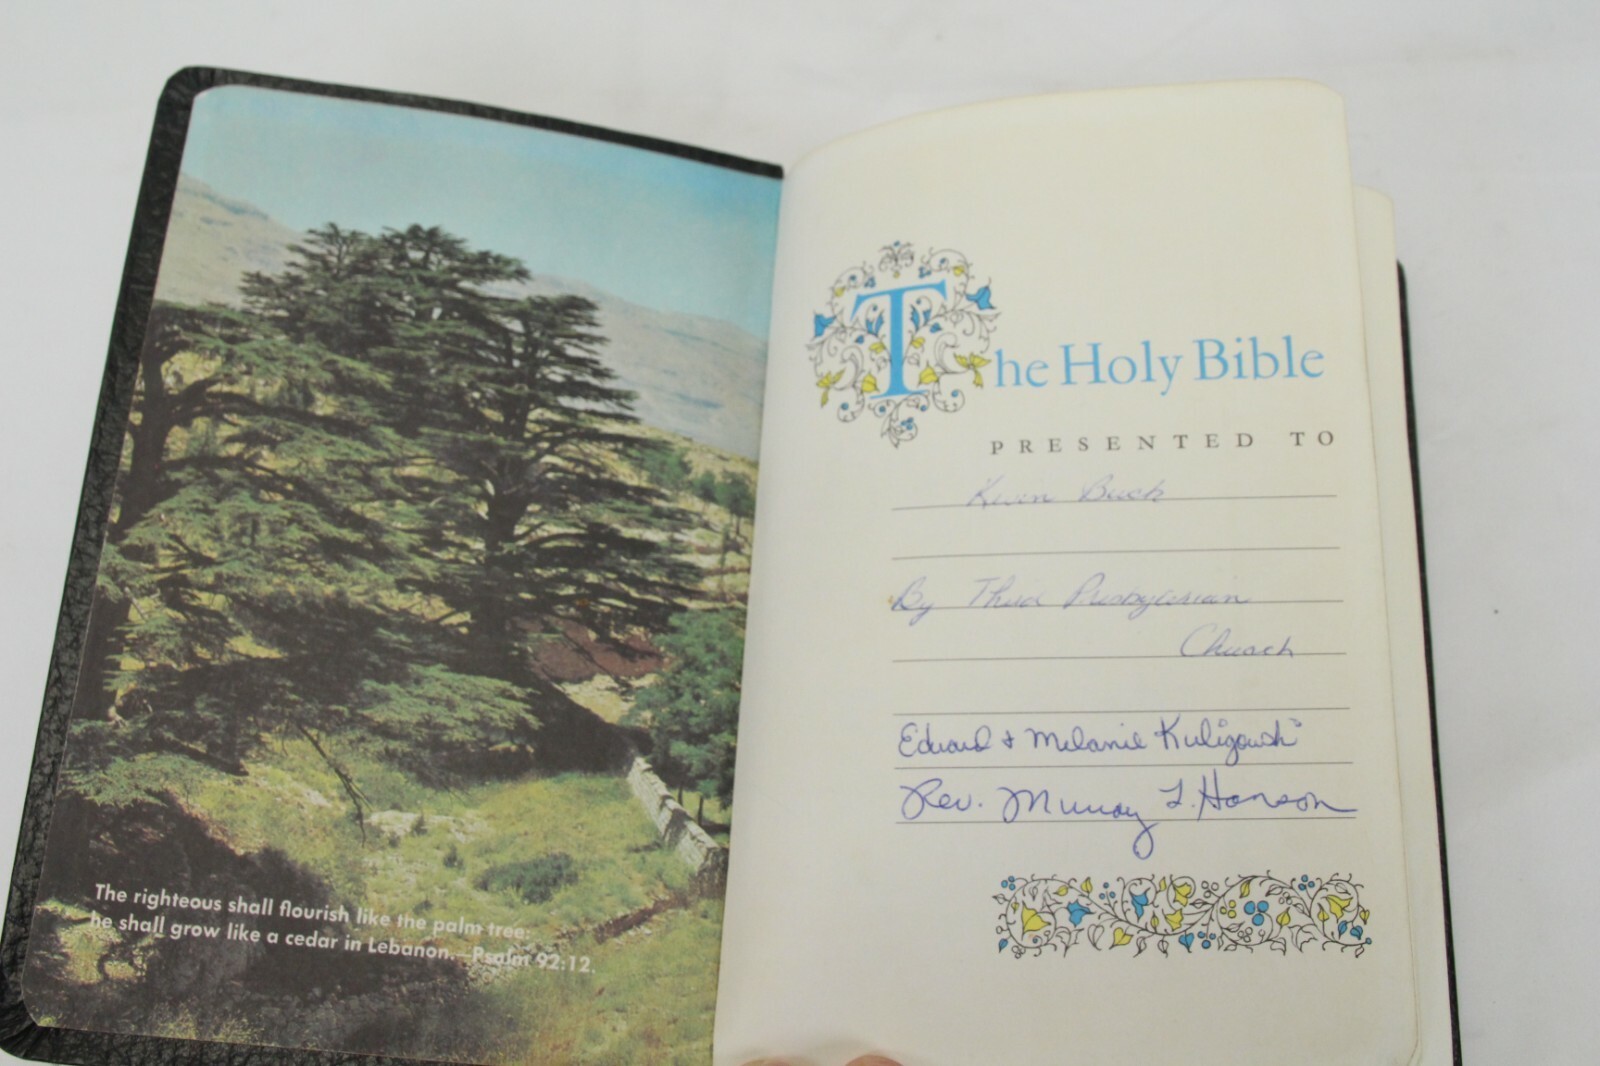 The righteous shall flourish like the palm tree:
he shall grow like a cedar in Lebanon.—Psalm 92:12.
The Holy Bible
PRESENTED TO
Kevin Buck
By Third Presbyterian
Church
Edward & Melanie Kuligowski
Rev. Murray L. Hanson